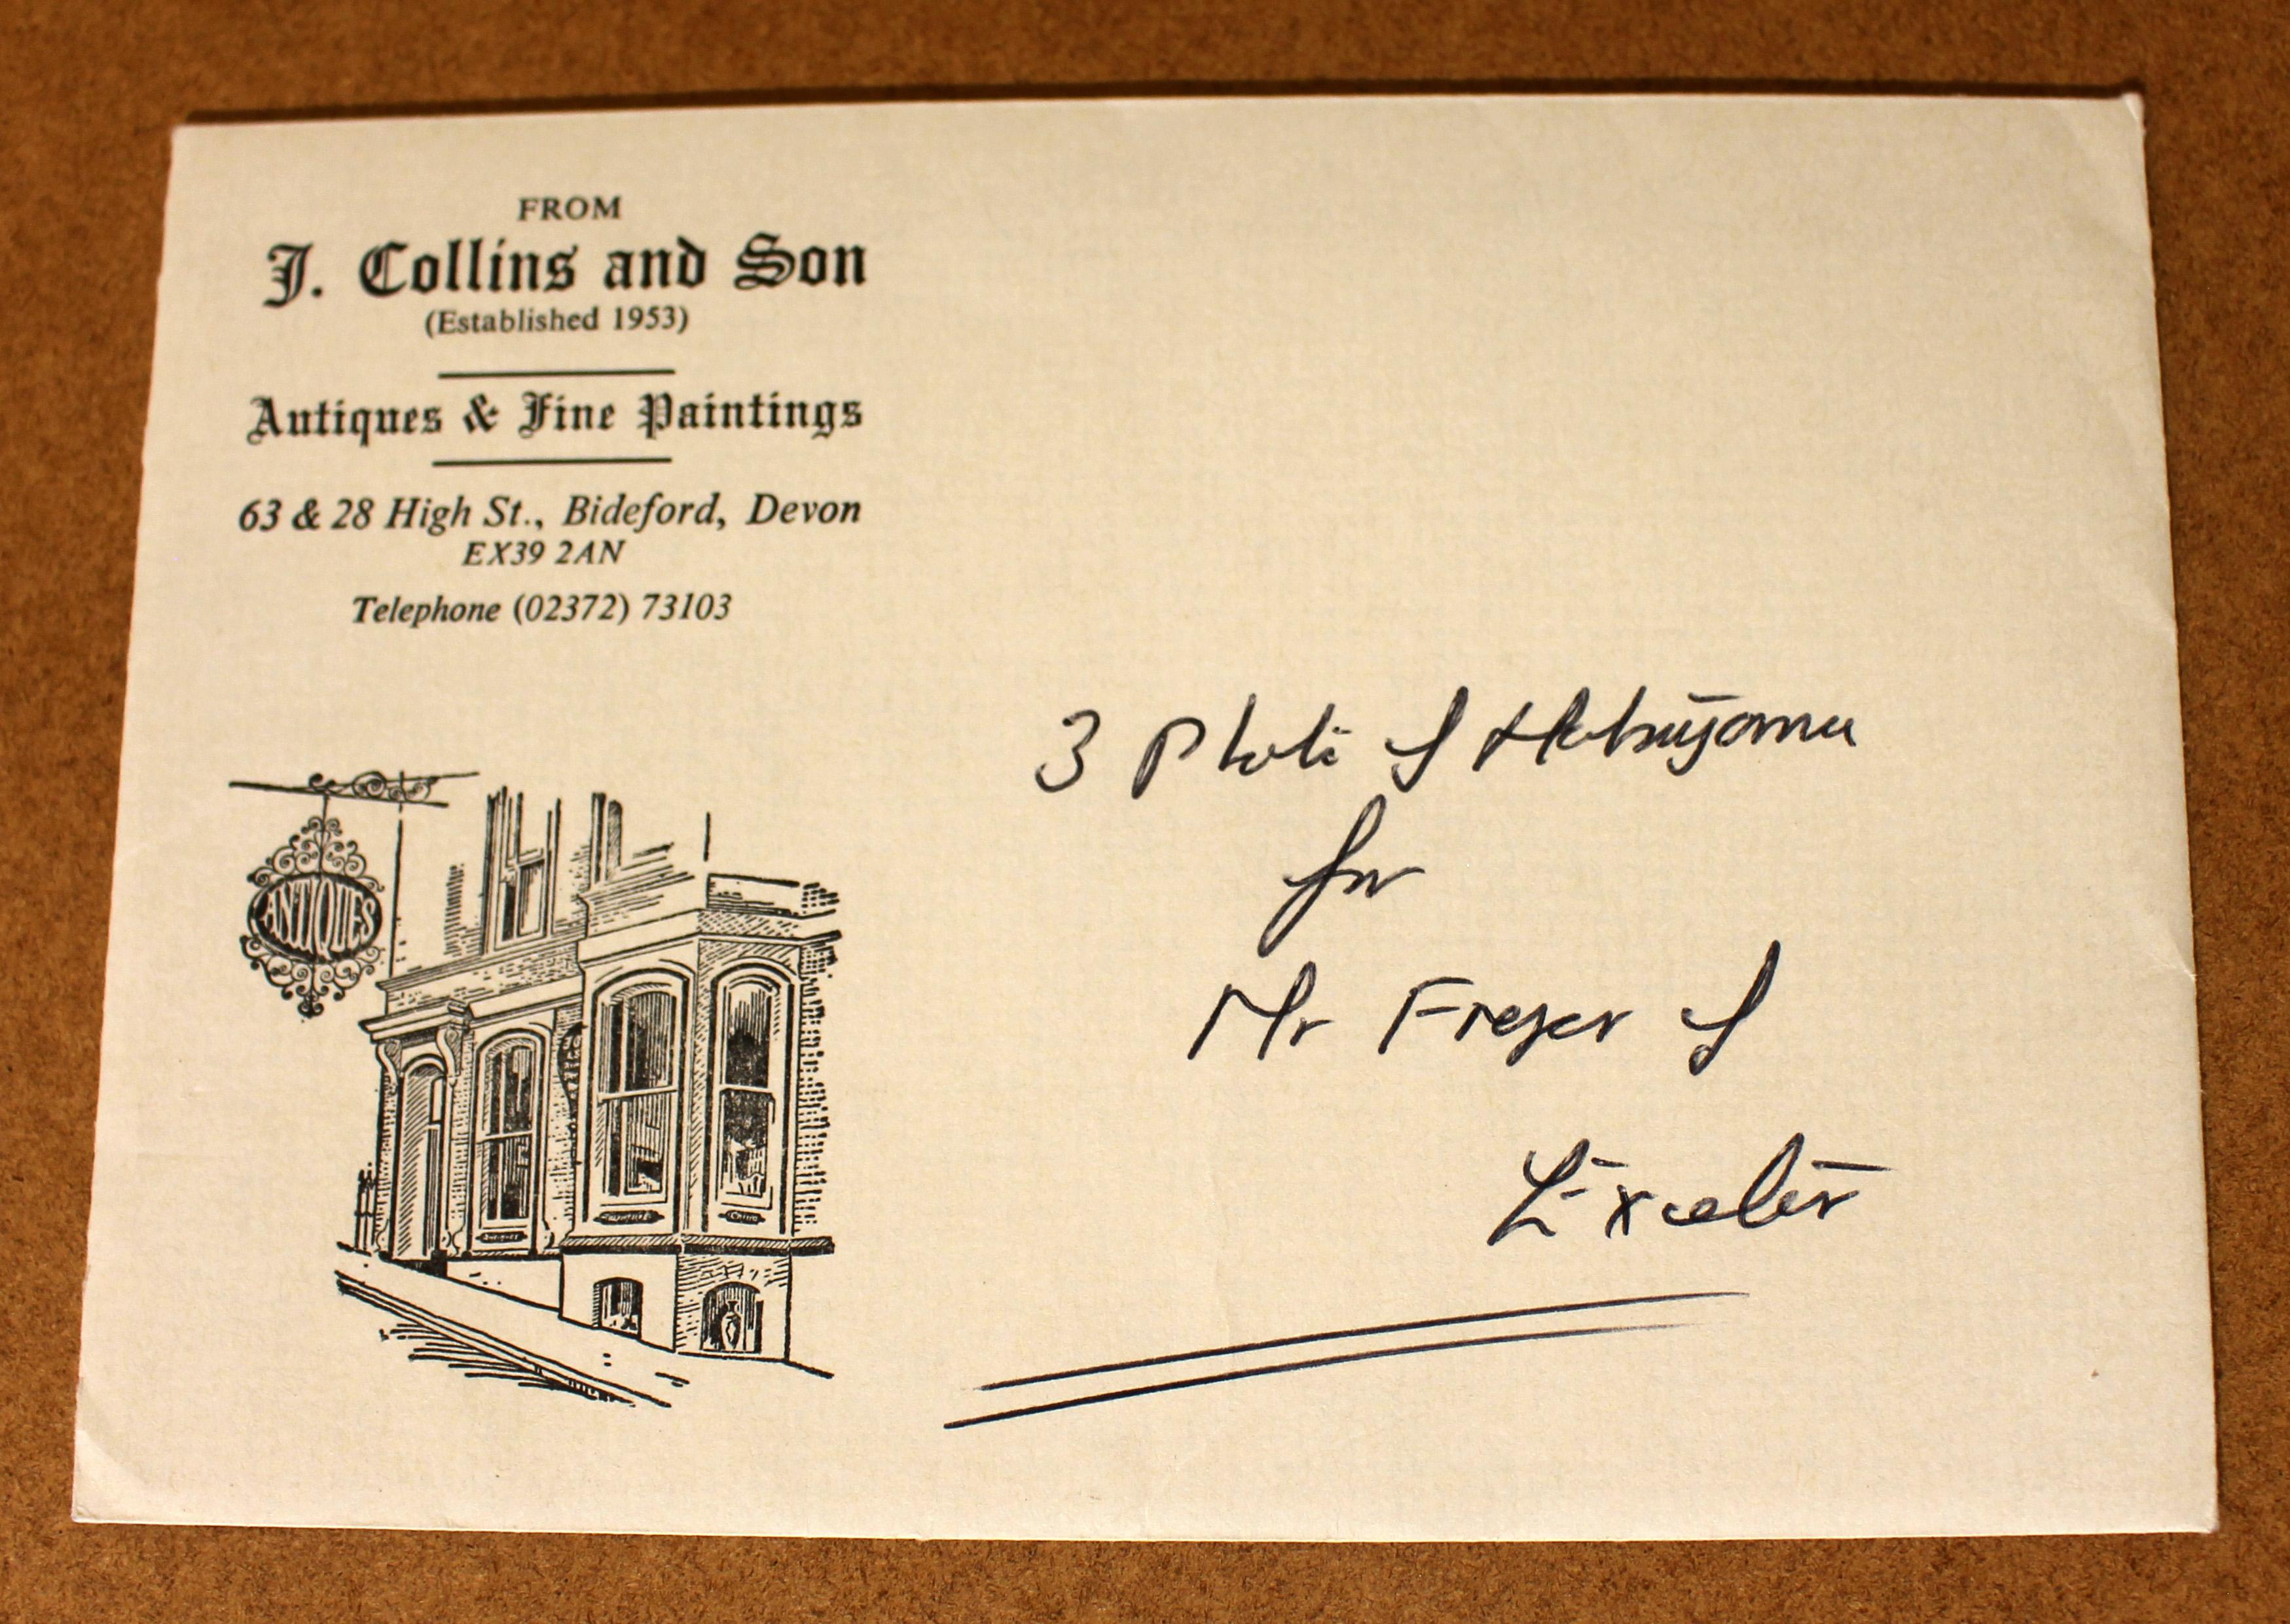 FROM
J. Collins and Son
(Established 1953)
Antiques & Fine Paintings
63 & 28 High St., Bideford, Devon
EX39 2AN
Telephone (02372) 73103
ANTIQUES
3 of
for
Mr of
Exeter